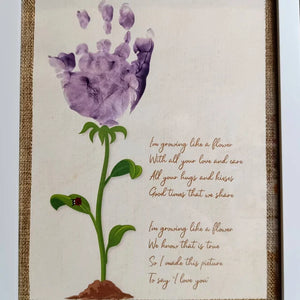 I'm growing like a flower
With all your love and care
All your hugs and kisses
Good times that we share
I'm growing like a flower
We know that is true
So I made this picture
To say 'I love you'